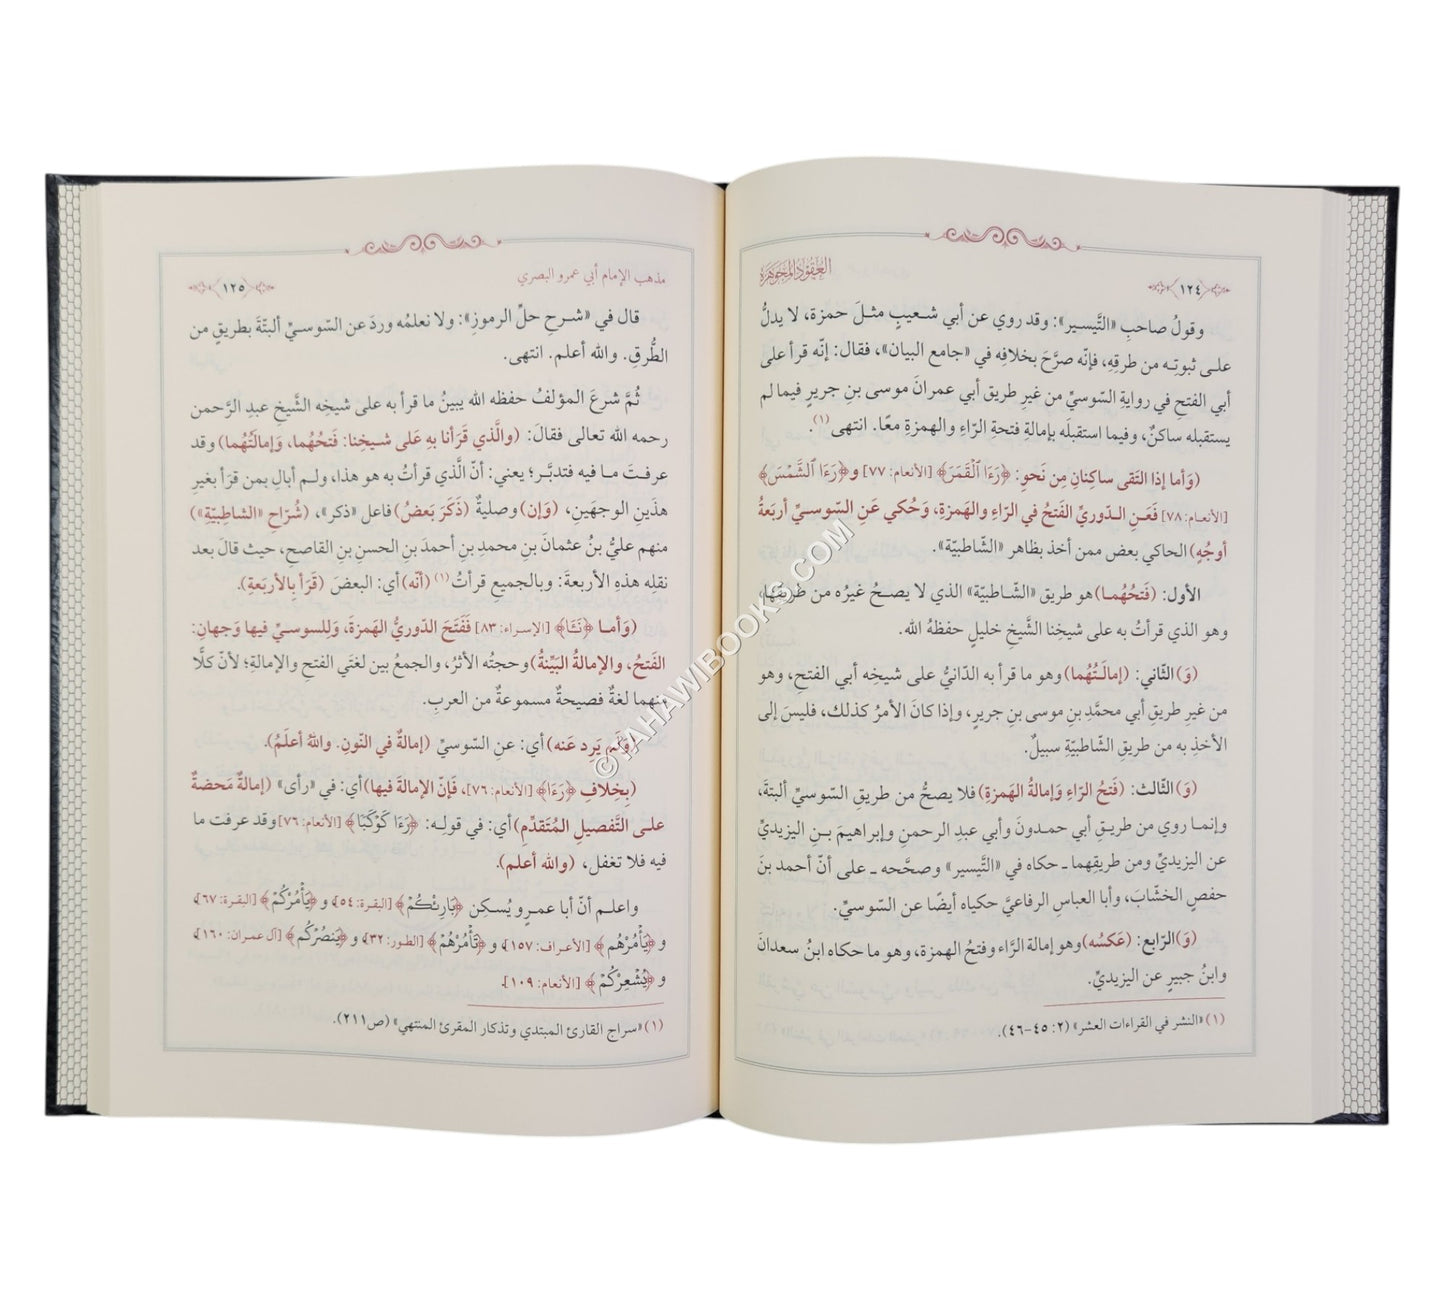 ١٢٤ العقود المجوهرة
وقولُ صاحبِ «التَّيسير»: وقد روي عن أبي شعيبٍ مثلَ حمزة، لا يدلُّ
على ثبوتِه من طرقِهِ، فإنّه صرَّحَ بخلافِه في «جامع البيان»، فقال: إنّه قرأ على
أبي الفتحِ في روايةِ السّوسيِّ من غيرِ طريق أبي عمرانَ موسى بنِ جريرٍ فيما لم
يستقبله ساكنٌ، وفيما استقبلَه بإمالةِ فتحةِ الرّاءِ والهمزةِ معًا. انتهى(١).
(وَأما إذا التَقى ساكِنانِ مِن نَحوِ: ﴿رَءَا ٱلْقَمَرَ﴾ [الأنعام: ٧٧] و﴿رَءَا ٱلشَّمْسَ﴾
[الأنعام: ٧٨] فَعَنِ الدّوريِّ الفَتحُ في الرّاءِ والهَمزةِ، وَحُكي عَنِ السّوسيِّ أربَعةُ
أوجُهٍ) الحاكي بعض ممن أخذ بظاهر «الشّاطبيّة».
الأول: (فَتحُهُما) هو طريق «الشّاطبيّة» الذي لا يصحُّ غيرُه من طريقِها،
وهو الذي قرأتُ به على شيخِنا الشَّيخِ خليلٍ حفظهُ الله.
(وَ) الثّاني: (إمالَتُهُما) وهو ما قرأ به الدّانيُّ على شيخِه أبي الفتحِ، وهو
من غيرِ طريقِ أبي محمَّدِ بنِ موسى بنِ جريرٍ، وإذا كانَ الأمرُ كذلك، فليسَ إلى
الأخذِ به من طريقِ الشّاطبيّةِ سبيلٌ.
(وَ) الثّالث: (فَتحُ الرّاءِ وَإمالةُ الهَمزةِ) فلا يصحُّ من طريقِ السّوسيِّ ألبتةَ،
وإنما روي من طريقِ أبي حمدونَ وأبي عبدِ الرحمنِ وإبراهيمَ بنِ اليزيديِّ
عن اليزيديِّ ومن طريقِهما ـ حكاه في «التَّيسير» وصحَّحه ـ على أنّ أحمد بنَ
حفصٍ الخشّابَ، وأبا العباسِ الرفاعيَّ حكياه أيضًا عن السّوسيِّ.
(وَ) الرّابع: (عَكسُه) وهو إمالة الرَّاء وفتحُ الهمزة، وهو ما حكاه ابنُ سعدانَ
وابنُ جبيرٍ عن اليزيديِّ.
(١) «النشر في القراءات العشر» (٢: ٤٥-٤٦).
مذهب الإمام أبي عمرو البصري ١٢٥
قال في «شرحِ حلِّ الرموزِ»: ولا نعلمُه وردَ عن السّوسيِّ ألبتّةَ بطريقٍ من
الطُّرقِ. والله أعلم. انتهى.
ثُمَّ شرعَ المؤلفُ حفظه الله يبينُ ما قرأ به على شيخِه الشَّيخِ عبدِ الرَّحمن
رحمه الله تعالى فقالَ: (والَّذي قَرَأنا بهِ عَلى شيخِنا: فَتحُهُما، وَإمالَتُهُما) وقد
عرفتَ ما فيه فتدبَّر؛ يعني: أنّ الَّذي قرأتُ به هو هذا، ولم أبالِ بمن قرَأ بغيرِ
هذَينِ الوجهَينِ، (وَإن) وصليةٌ (ذَكَرَ بَعضُ) فاعل «ذكر»، (شُرّاحِ «الشاطِبيّةِ»)
منهم عليُّ بنُ عثمانَ بنِ محمدِ بنِ أحمدَ بنِ الحسنِ بنِ القاصحِ، حيث قالَ بعد
نقلِه هذهِ الأربعةَ: وبالجميعِ قرأتُ(١) (أنّه) أي: البعضَ (قَرَأ بِالأربَعةِ).
(وَأما ﴿نَـَٔا﴾ [الإسراء: ٨٣] فَفَتَحَ الدّوريُّ الهَمزةَ، وَللسوسيِّ فيها وَجهانِ:
الفَتحُ، والإمالةُ البَيِّنةُ) وحجتُه الأثرُ، والجمعُ بين لغتَي الفتحِ والإمالةِ؛ لأنّ كلًّا
منهما لغةٌ فصيحةٌ مسموعةٌ من العربِ.
(وَلَم يَرِد عَنه) أي: عنِ السّوسيِّ (إمالةٌ في النّونِ. واللهُ أعلَمُ).
(بِخِلافِ ﴿رَءَا﴾ [الأنعام: ٧٦]، فَإنّ الإمالةَ فيها) أي: في «رأى» (إمالةٌ مَحضةٌ
على التَّفصيلِ المُتَقدِّمِ) أي: في قولِه: ﴿رَءَا كَوْكَبًا﴾ [الأنعام: ٧٦] وقد عرفت ما
فيه فلا تغفل، (والله أعلم).
واعلم أنّ أبا عمرٍو يُسكِن ﴿بَارِئْكُمْ﴾ [البقرة: ٥٤]، و ﴿يَأْمُرْكُمْ﴾ [البقرة: ٦٧]،
و ﴿يَأْمُرْهُم﴾ [الأعراف: ١٥٧]، و ﴿تَأْمُرْهُمْ﴾ [الطور: ٣٢]، و ﴿يَنصُرْكُم﴾ [آل عمران: ١٦٠]،
و ﴿يُشْعِرْكُمْ﴾ [الأنعام: ١٠٩].
(١) «سراج القارئ المبتدي وتذكار المقرئ المنتهي» (ص٢١١).
© TAHAWIBOOKS.COM